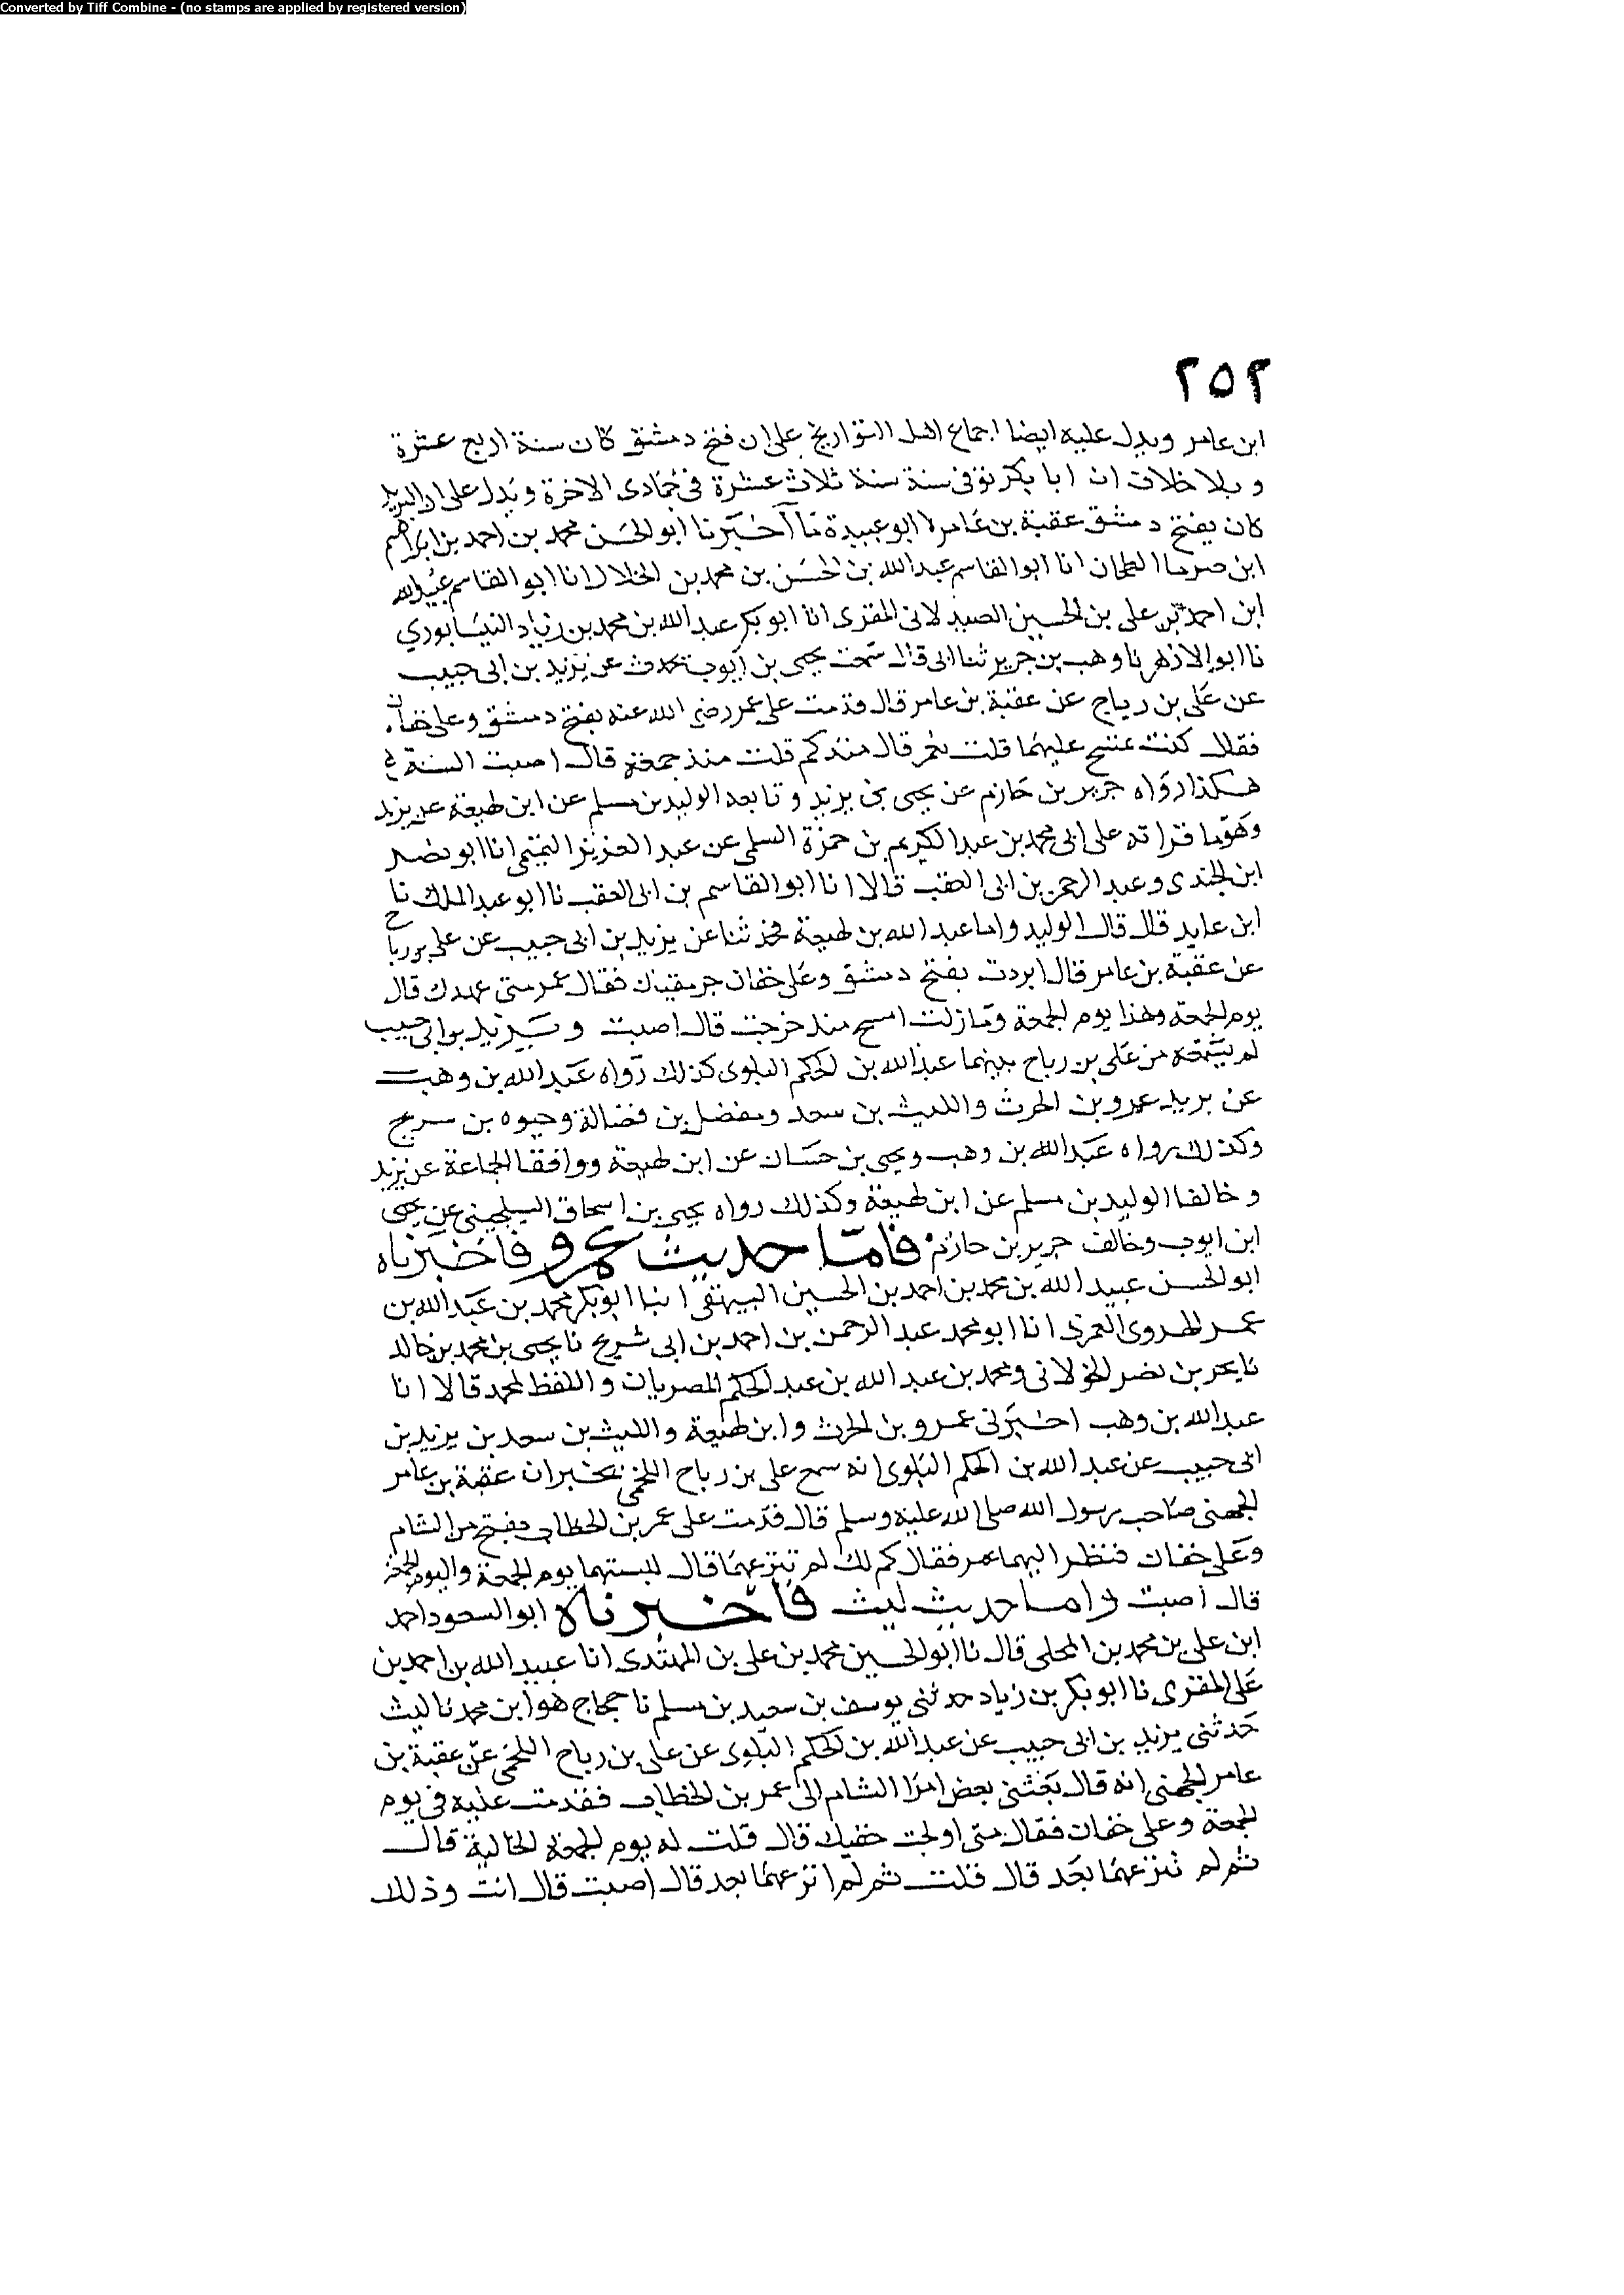 Converted by Tiff Combine - (no stamps are applied by registered version)
٢٥٢
ابن عامر ويدل عليه ايضا اجماع اهل التواريخ على ان فتح دمشق كان سنة اربع عشرة
وبلا خلاف ان ابا بكر توفى سنة سنة ثلاث عشرة فى جمادى الاخرة ويدل على ان البريد
كان بفتح دمشق عقبة بن عامر لا ابو عبيدة ما آخبرنا ابو الحسن محمد بن احمد بن ابراهيم
ابن صرما الطحان انا ابو القاسم عبد الله بن الحسن بن محمد بن الخلال انا ابو القاسم عبيد الله
ابن احمد بن على بن الحسين الصيدلانى المقرى انا ابو بكر عبد الله بن محمد بن زياد النيسابوري
نا ابو الازهر نا وهب بن جرير ثنا ابى قال سمعت يحيى بن ايوب يحدث عن يزيد بن ابى حبيب
عن على بن رياح عن عقبة بن عامر قال قدمت على عمر رضى الله عنه بفتح دمشق وعلى خفان
فقال كنت تمسح عليهما قلت نعم قال منذ كم قلت منذ جمعة قال اصبت السنة
هكذا رواه جرير بن حازم عن يحيى بن يزيد وتابعه الوليد بن مسلم عن ابن لهيعة عن يزيد
وهو ما قراته على ابى محمد بن عبد الكريم بن حمزة السلمى عن عبد العزيز التميمى انا ابو نصر
ابن الجندى وعبد الرحمن بن ابى العقب قالا انا ابو القاسم بن ابى العقب نا ابو عبد الملك نا
ابن عايد قال قال الوليد واما عبد الله بن لهيعة فحدثنا عن يزيد بن ابى حبيب عن على بن رباح
عن عقبة بن عامر قال ابردت بفتح دمشق وعلى خفان جرمقيان فقال عمر متى عهدك قال
يوم الجمعة وهذا يوم الجمعة وما زلت امسح منذ خرجت قال اصبت ويزيد بن ابى حبيب
لم يسمعه من على بن رباح بينهما عبد الله بن الحكم البلوى كذلك رواه عبد الله بن وهب
عن بريد عمرو بن الحرث والليث بن سعد ومفضل بن فضالة وحيوه بن سريج
وكذلك رواه عبد الله بن وهب ويحيى بن حسان عن ابن لهيعة ووافقا الجماعة عن يزيد
وخالفا الوليد بن مسلم عن ابن لهيعة وكذلك رواه يحيى بن اسحاق السيلحينى عن يحيى
ابن ايوب وخالف جرير بن حازم فامّا حديث عمرو فاخبرناه
ابو الحسن عبيد الله بن محمد بن احمد بن الحسين البيهقى انبا ابو بكر محمد بن عبد الله بن
عمر الهروى العمرى انا ابو محمد عبد الرحمن بن احمد بن ابى شريح نا يحيى بن محمد بن خالد
نا بحر بن نصر الخولانى ومحمد بن عبد الله بن عبد الحكم المصريان واللفظ لمحمد قالا انا
عبد الله بن وهب اخبرنى عمرو بن الحرث وابن لهيعة والليث بن سعد بن يزيد بن
ابى حبيب عن عبد الله بن الحكم البلوى انه سمع على بن رباح اللخمى يخبر ان عقبة بن عامر
الجهنى صاحب رسول الله صلى الله عليه وسلم قال قدمت على عمر بن الخطاب بفتح من الشام
وعلى خفان فنظر اليهما عمر فقال كم لك لم تنزعهما قال لبستهما يوم الجمعة واليوم الجمعة
قال اصبت واما حديث ليث فاخبرناه ابو السعود احمد
ابن على بن محمد بن المحلى قال نا ابو الحسين محمد بن على بن المهتدى انا عبيد الله بن احمد بن
على المقرى نا ابو بكر بن زياد حدثنى يوسف بن سعيد بن مسلم نا حجاج هو ابن محمد نا ليث
حدثنى يزيد بن ابى حبيب عن عبد الله بن الحكم البلوى عن على بن رباح اللخمى عن عقبة بن
عامر الجهنى انه قال بعثنى بعض امرا الشام الى عمر بن الخطاب فقدمت عليه فى يوم
الجمعة وعلى خفان فقال متى اولجت خفيك قال قلت له يوم الجمعة الخالية قال
ثم لم تنزعهما بعد قال قلت ثم لم انزعهما بعد قال اصبت قال انت وذلك